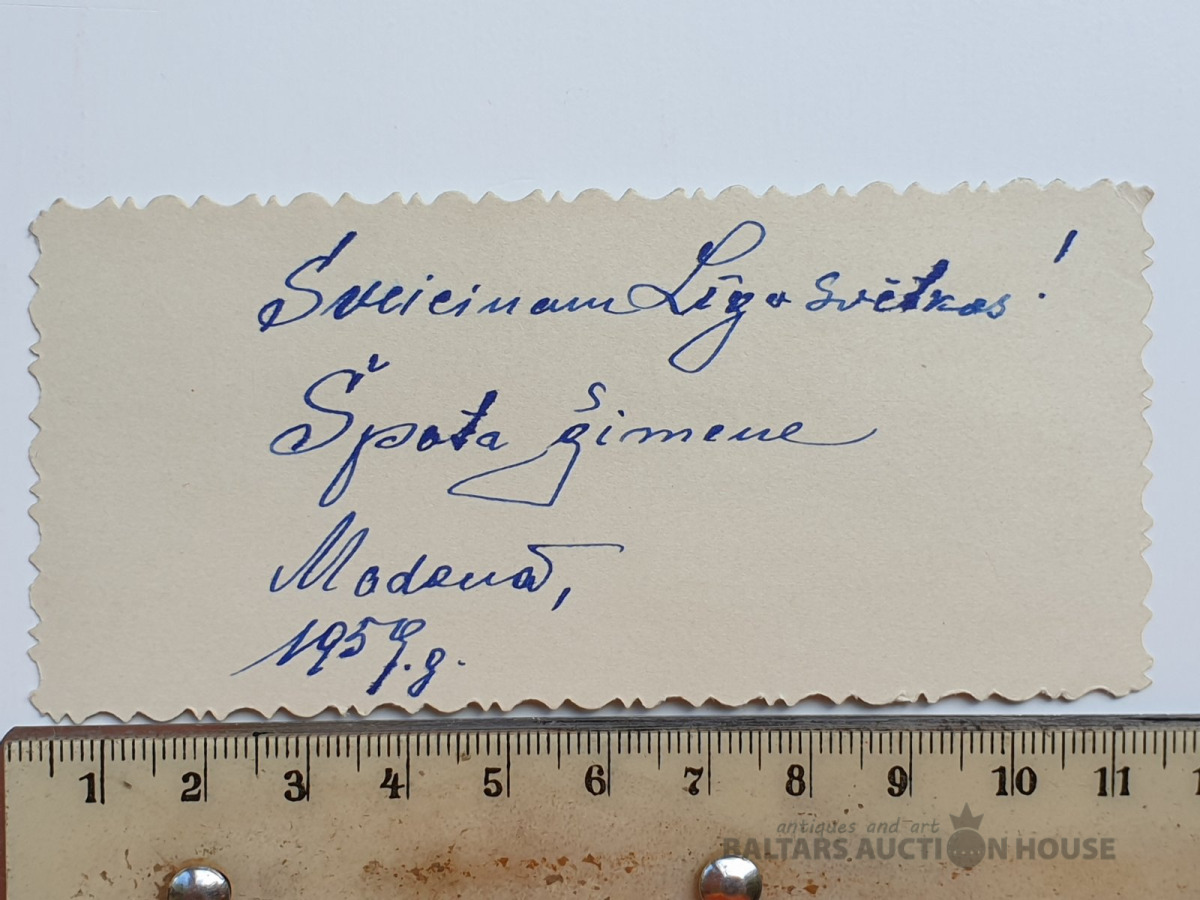 Sveicinam Līgo svētkos!
Špota ģimene
Madonā,
1959.g.
1 2 3 4 5 6 7 8 9 10 11 1
antiques and art
BALTARS AUCTION HOUSE